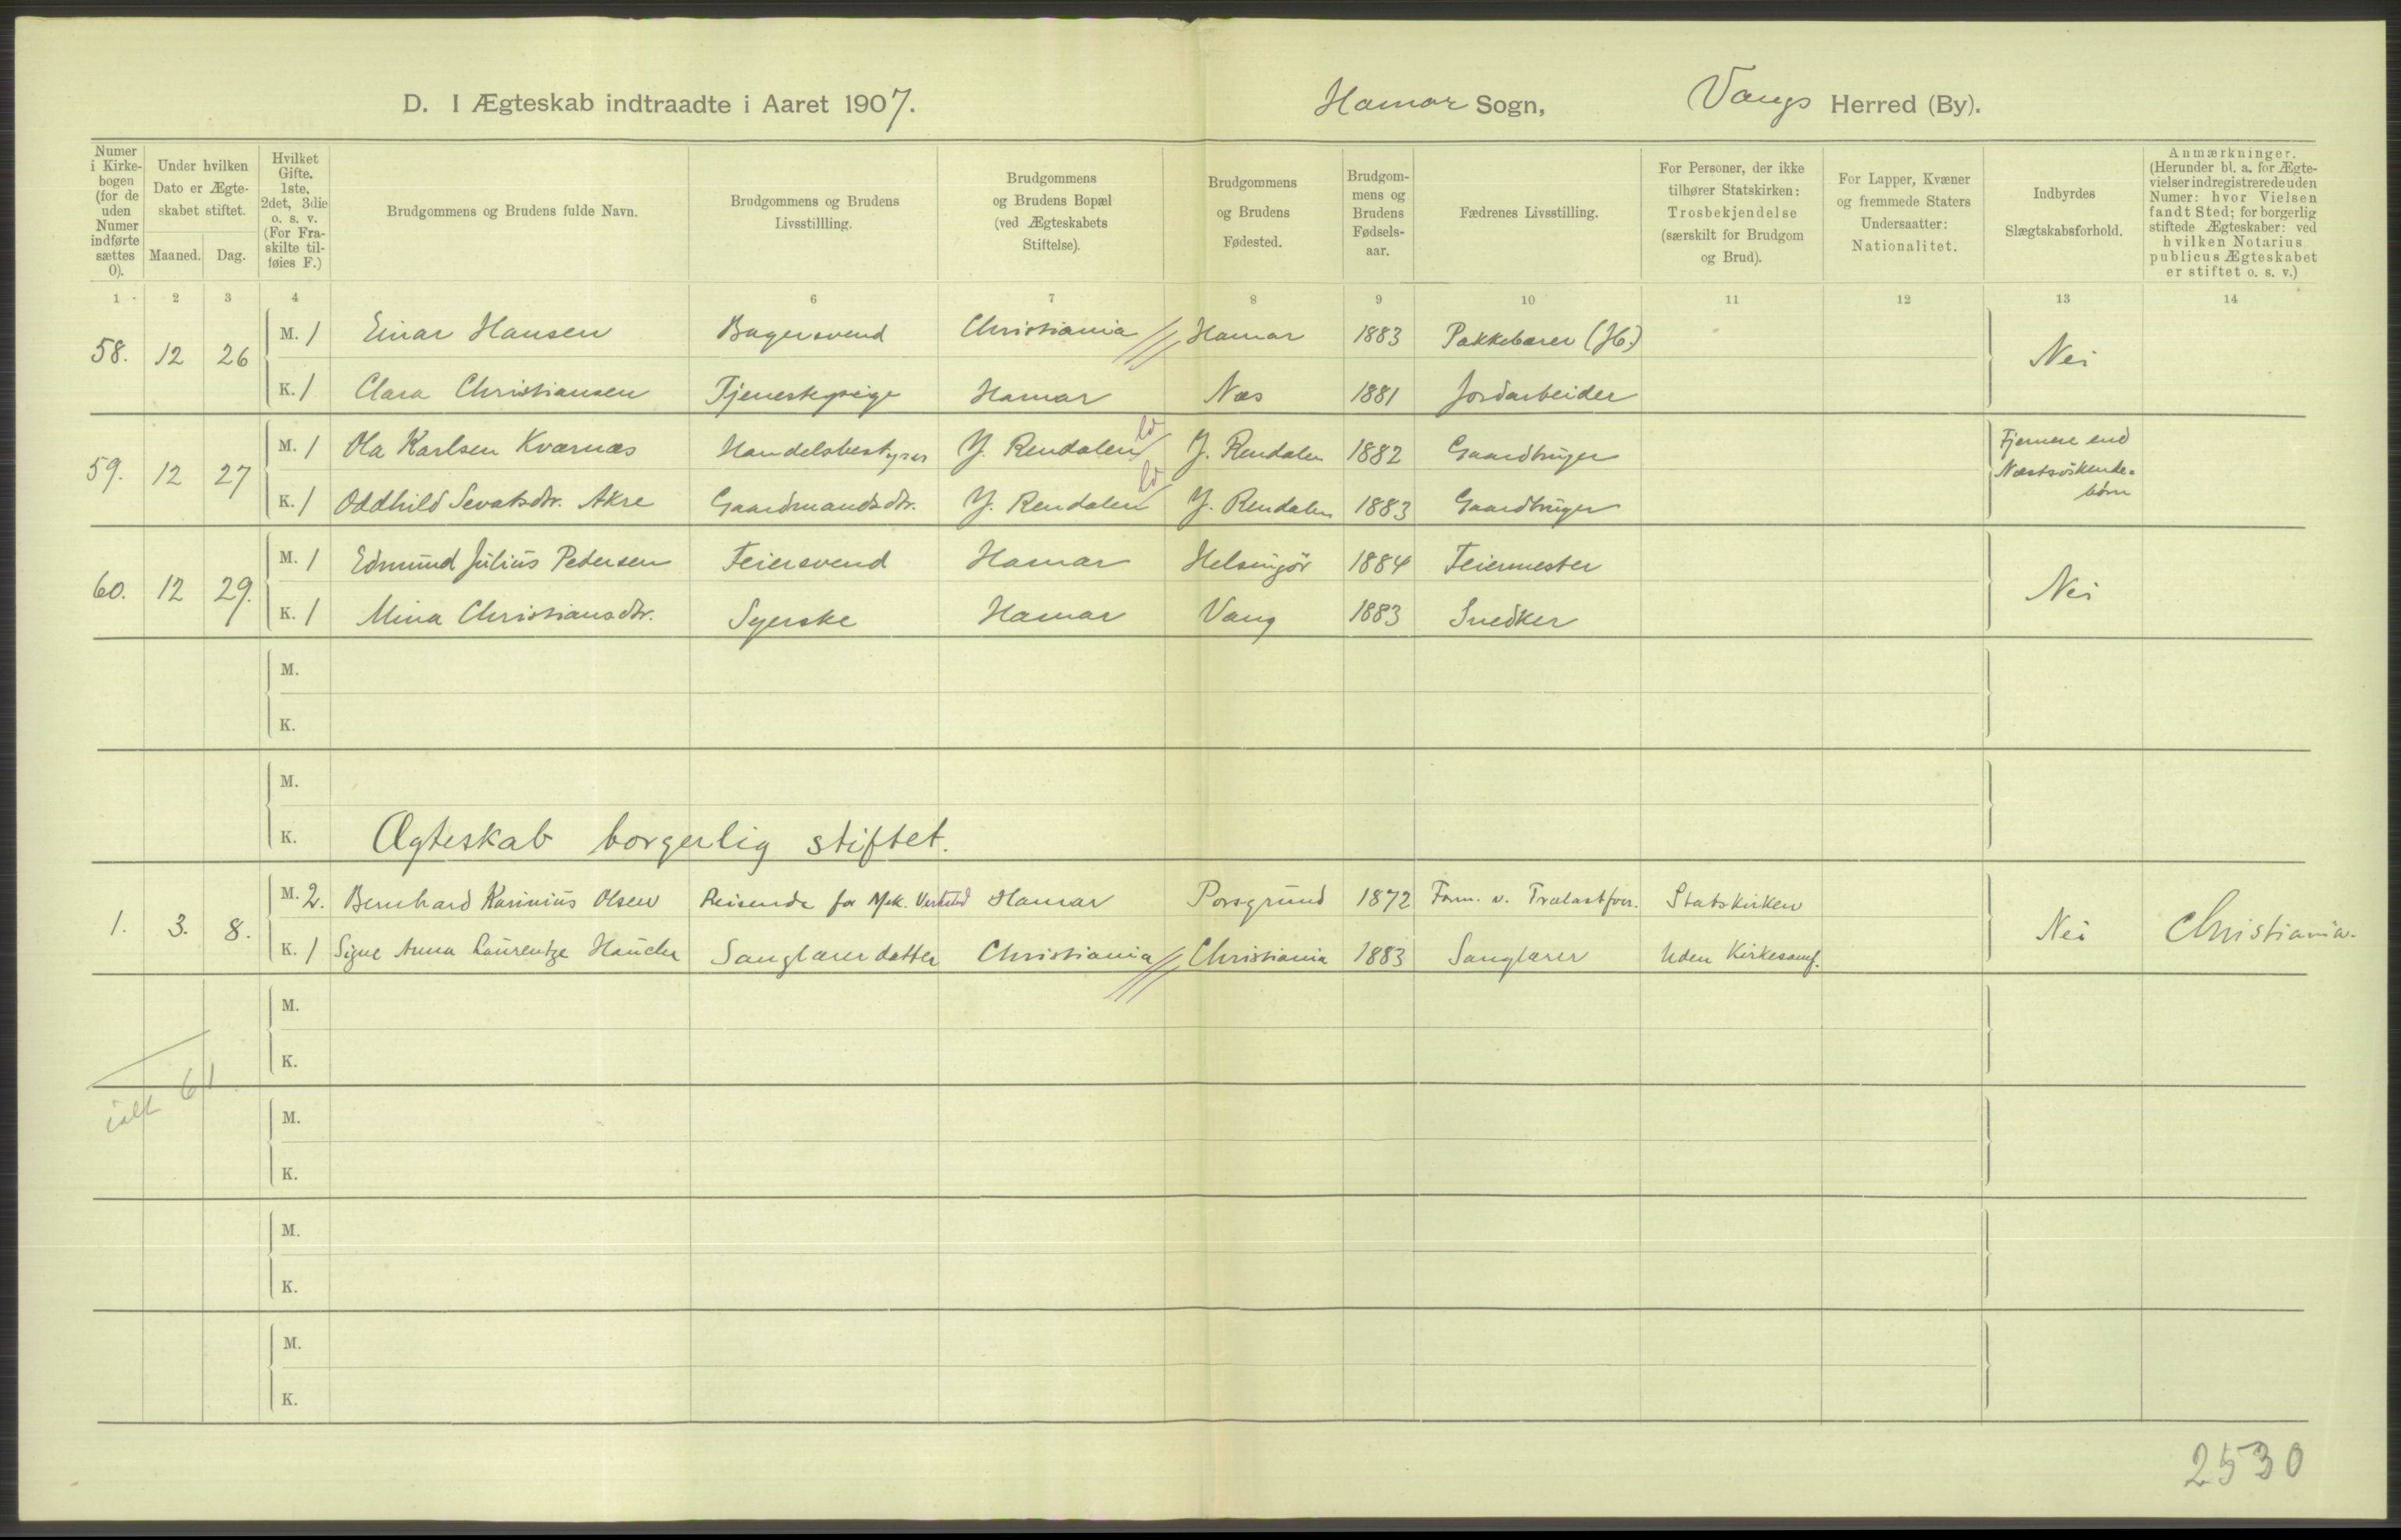 D. I Ægteskab indtraadte i Aaret 1907. Hamar Sogn, Vangs Herred (By).
Numer i Kirke-bogen (for de uden Numer indførte sættes 0). Under hvilken Dato er Ægte-skabet stiftet. Maaned. Dag. Hvilket Gifte. 1ste, 2det, 3die o. s. v. (For Fra-skilte til-føies F.) Brudgommens og Brudens fulde Navn. Brudgommens og Brudens Livsstillling. Brudgommens og Brudens Bopæl (ved Ægteskabets Stiftelse). Brudgommens og Brudens Fødested. Brudgom-mens og Brudens Fødsels-aar. Fædrenes Livsstilling. For Personer, der ikke tilhører Statskirken: Trosbekjendelse (særskilt for Brudgom og Brud). For Lapper, Kvæner og fremmede Staters Undersaatter: Nationalitet. Indbyrdes Slægtskabsforhold. Anmærkninger. (Herunder bl. a. for Ægte-vielser indregistrerede uden Numer: hvor Vielsen fandt Sted; for borgerlig stiftede Ægteskaber: ved hvilken Notarius publicus Ægteskabet er stiftet o. s. v.)
1 2 3 4 6 7 8 9 10 11 12 13 14
58. 12 26 M. 1 Einar Hansen Bagersvend Christiania Hamar 1883 Pakkebærer (H.) Nei
K. 1 Clara Christiansen Tjenestepige Hamar Næs 1881 Jordarbeider
59. 12 27 M. 1 Ola Karlsen Kværnæs Handelsbestyrer Y. Rendalen Y. Rendalen 1882 Gaardbruger Fjernere end Næstsøskende-børn
K. 1 Oddhild Sevatsdtr. Akre Gaardmandsdtr. Y. Rendalen Y. Rendalen 1883 Gaardbruger
60. 12 29. M. 1 Edmund Julius Petersen Feiersvend Hamar Helsingör 1884 Feiermester Nei
K. 1 Mina Christiansdtr. Syerske Hamar Vang 1883 Snedker
M.
K.
M.
K. Ægteskab borgerlig stiftet.
1. 3. 8. M. 2. Bernhard Karinius Olsen Reisende for Mek. Verksted Hamar Porsgrund 1872 Form. v. Trælastforr. Statskirken Nei Christiania.
K. 1 Signe Anna Laurentze Sanglærerdatter Christiania Christiania 1883 Sanglærer Uden Kirkesamf.
M.
K.
ialt 61
M.
K.
M.
K.
M.
K.
2530